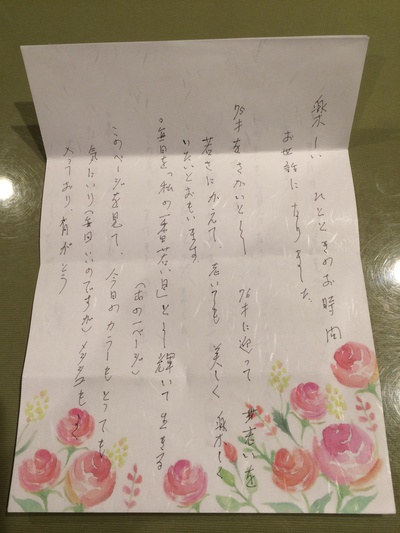 楽しい ひとときのお時間
お世話になりました。
76才をさかいとし 76才に迎って 老いを
若さにかえて、老いても 美しく 楽しく
いたいとおもいます。
。毎日を「私の一番若い日」とし輝いて生きる
(あの一ページ)
このページを見て、今日のカラーもとっても
気にいり(毎回いのですが)メンタルもよく
入っており、有がとう